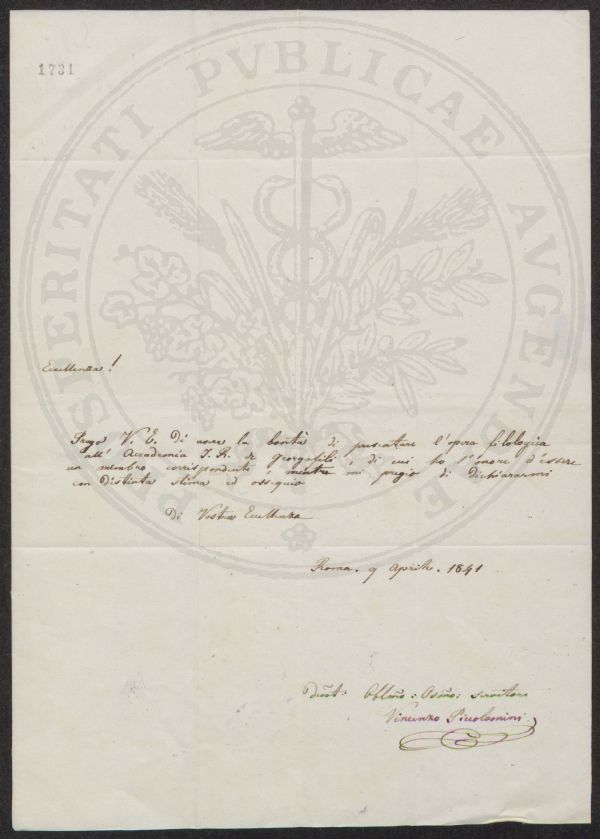 1731
PROSPERITATI PVBLICAE AVGENDAE
Eccellenza!
Prego V. E. di avere la bontà di presentare l'opera filologica
all' Accademia I. R. de Georgofili, di cui ho l'onore d'essere
un membro corrispondente, mentre mi pregio di dichiararmi
con distinta stima ed ossequio
Di Vostra Eccellenza
Roma. 9 Aprile. 1841
Obblmo: Osmo: servitore
Vincenzo Piccolomini